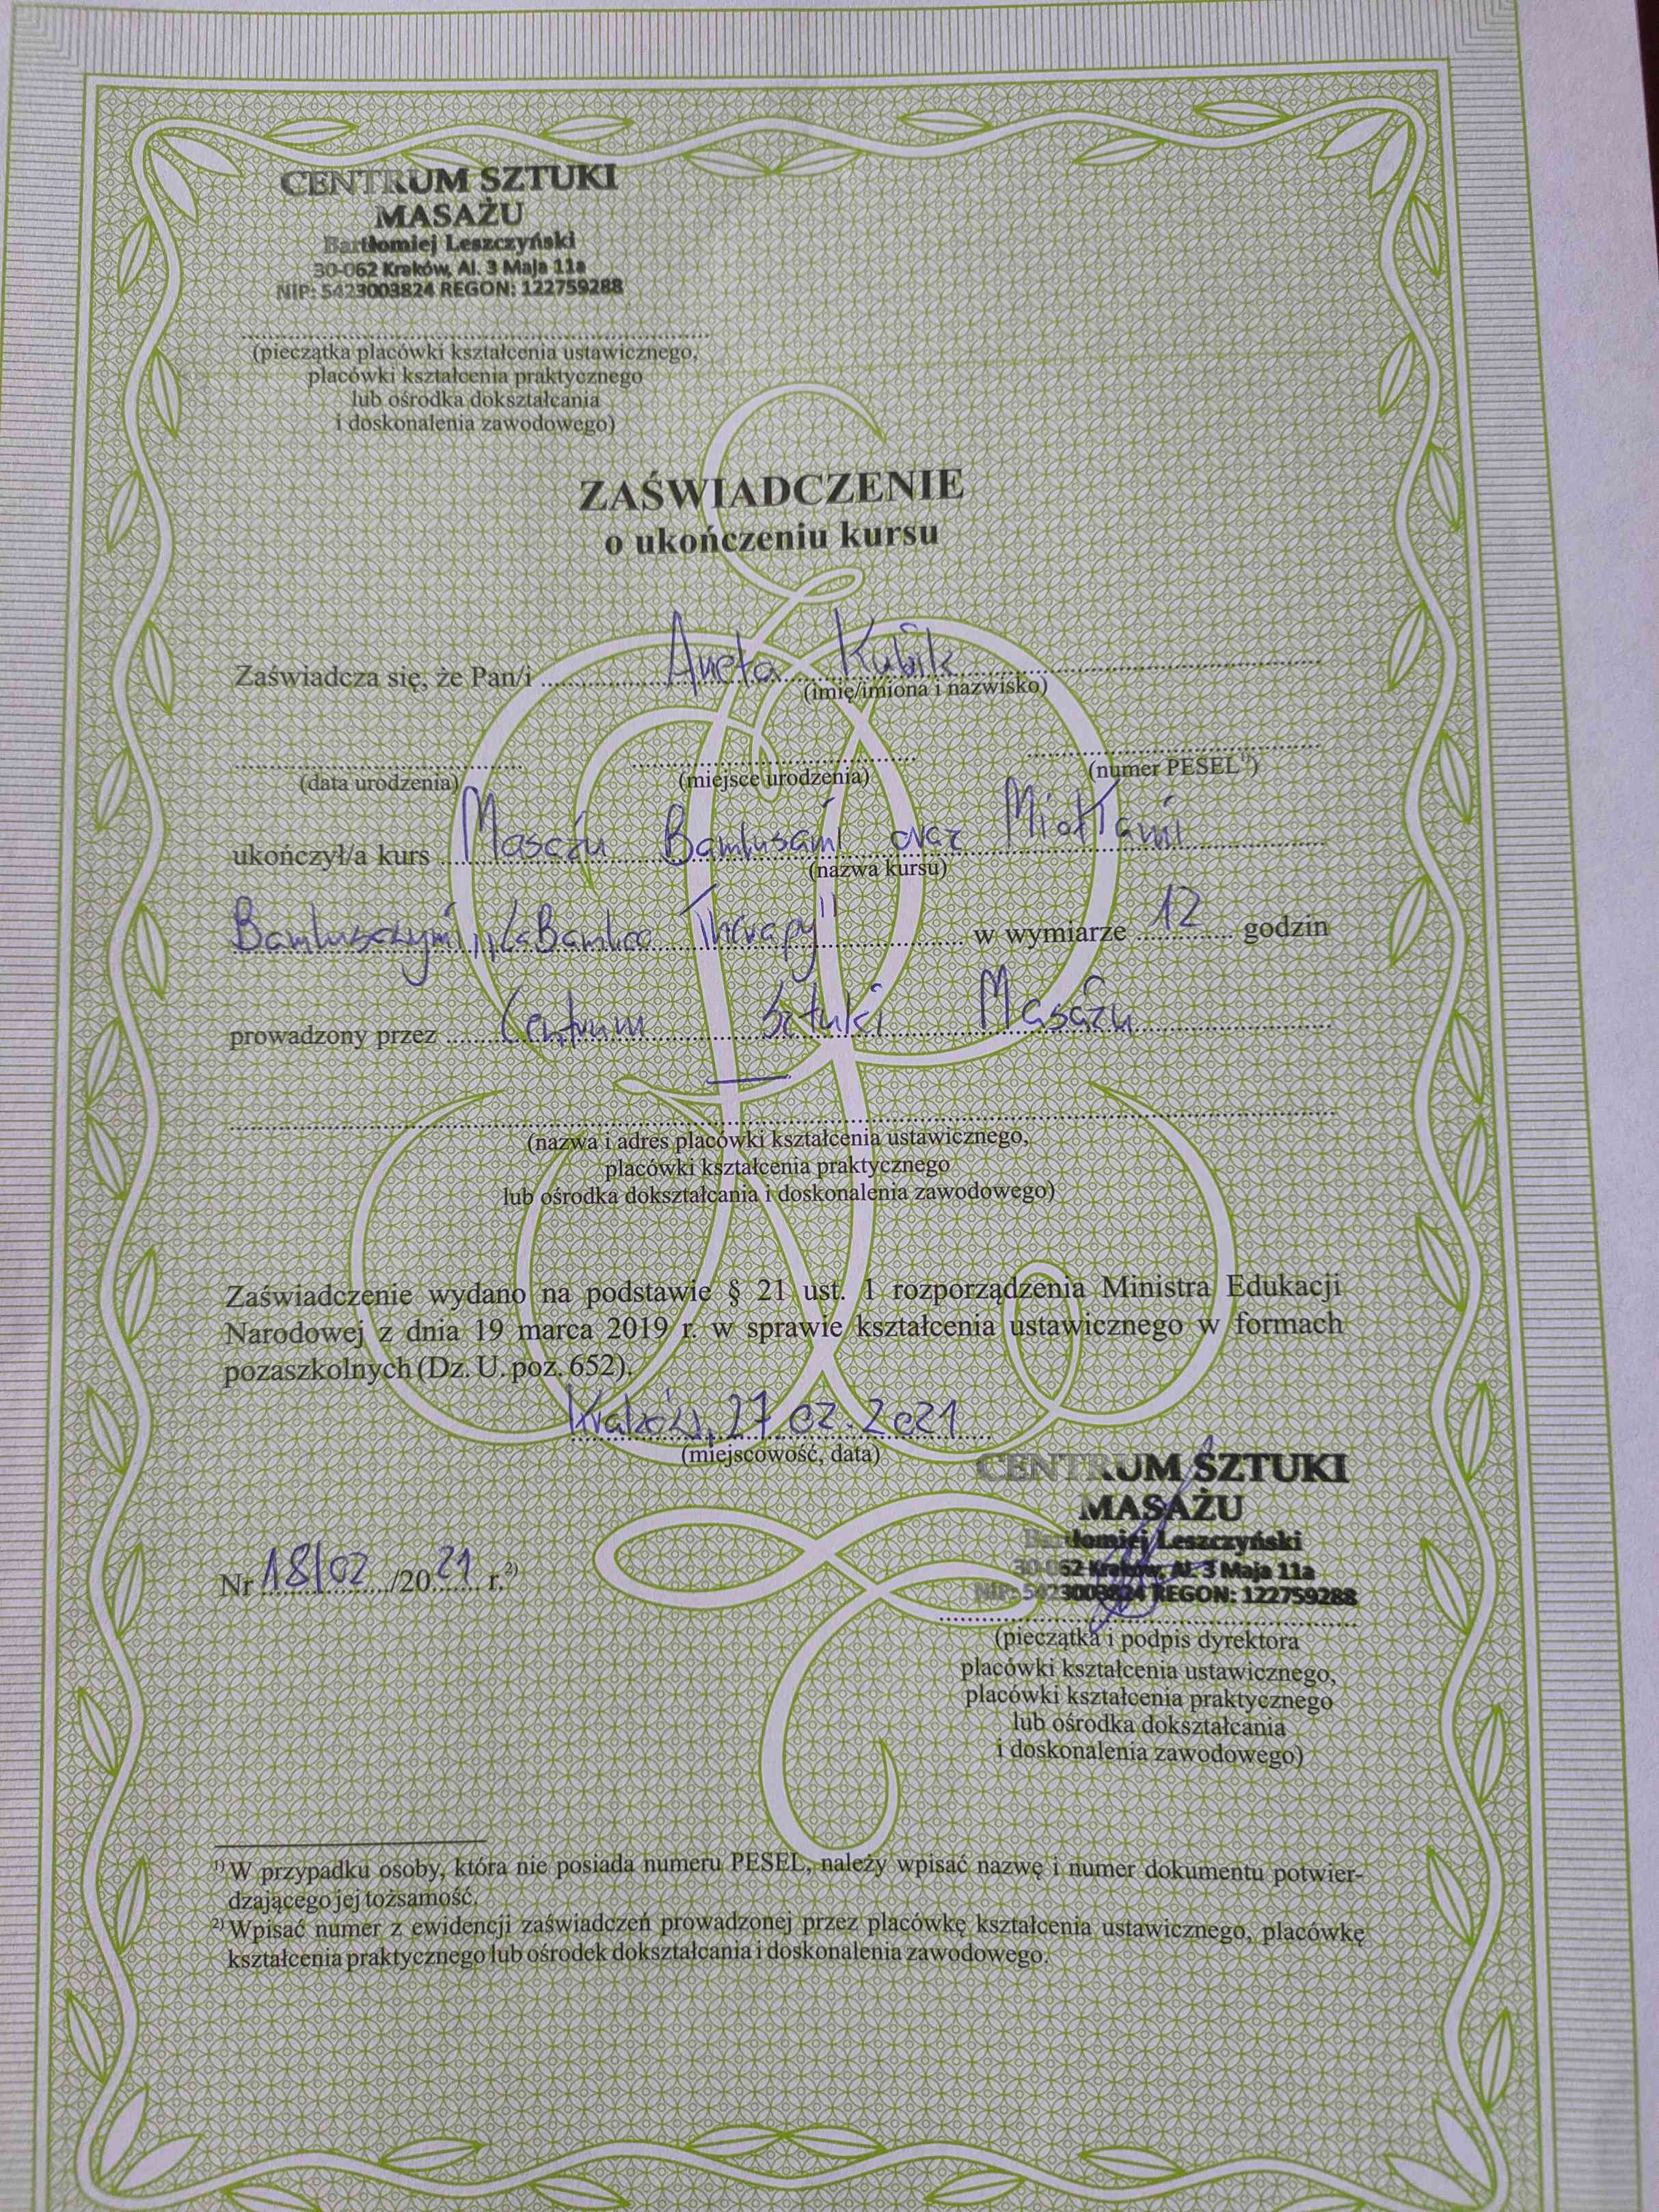 CENTRUM SZTUKI
MASAŻU
Bartłomiej Leszczyński
30-062 Kraków, Al. 3 Maja 11a
NIP: 5423003824 REGON: 122759288
(pieczątka placówki kształcenia ustawicznego,
placówki kształcenia praktycznego
lub ośrodka dokształcania
i doskonalenia zawodowego)
ZAŚWIADCZENIE
o ukończeniu kursu
Zaświadcza się, że Pan/i Aneta Kubik
(imię/imiona i nazwisko)
(data urodzenia) (miejsce urodzenia) (numer PESEL¹⁾)
ukończył/a kurs Masażu Bambusami oraz Miotłami
(nazwa kursu)
Bambusowymi "La Bamboo Therapy" w wymiarze 12 godzin
prowadzony przez Centrum Sztuki Masażu
(nazwa i adres placówki kształcenia ustawicznego,
placówki kształcenia praktycznego
lub ośrodka dokształcania i doskonalenia zawodowego)
Zaświadczenie wydano na podstawie § 21 ust. 1 rozporządzenia Ministra Edukacji
Narodowej z dnia 19 marca 2019 r. w sprawie kształcenia ustawicznego w formach
pozaszkolnych (Dz. U. poz. 652).
Kraków, 27.02.2021
(miejscowość, data)
CENTRUM SZTUKI
MASAŻU
Bartłomiej Leszczyński
30-062 Kraków, Al. 3 Maja 11a
NIP: 5423003824 REGON: 122759288
Nr 18/02/2021 r.²⁾
(pieczątka i podpis dyrektora
placówki kształcenia ustawicznego,
placówki kształcenia praktycznego
lub ośrodka dokształcania
i doskonalenia zawodowego)
¹⁾ W przypadku osoby, która nie posiada numeru PESEL, należy wpisać nazwę i numer dokumentu potwier-
dzającego jej tożsamość.
²⁾ Wpisać numer z ewidencji zaświadczeń prowadzonej przez placówkę kształcenia ustawicznego, placówkę
kształcenia praktycznego lub ośrodek dokształcania i doskonalenia zawodowego.